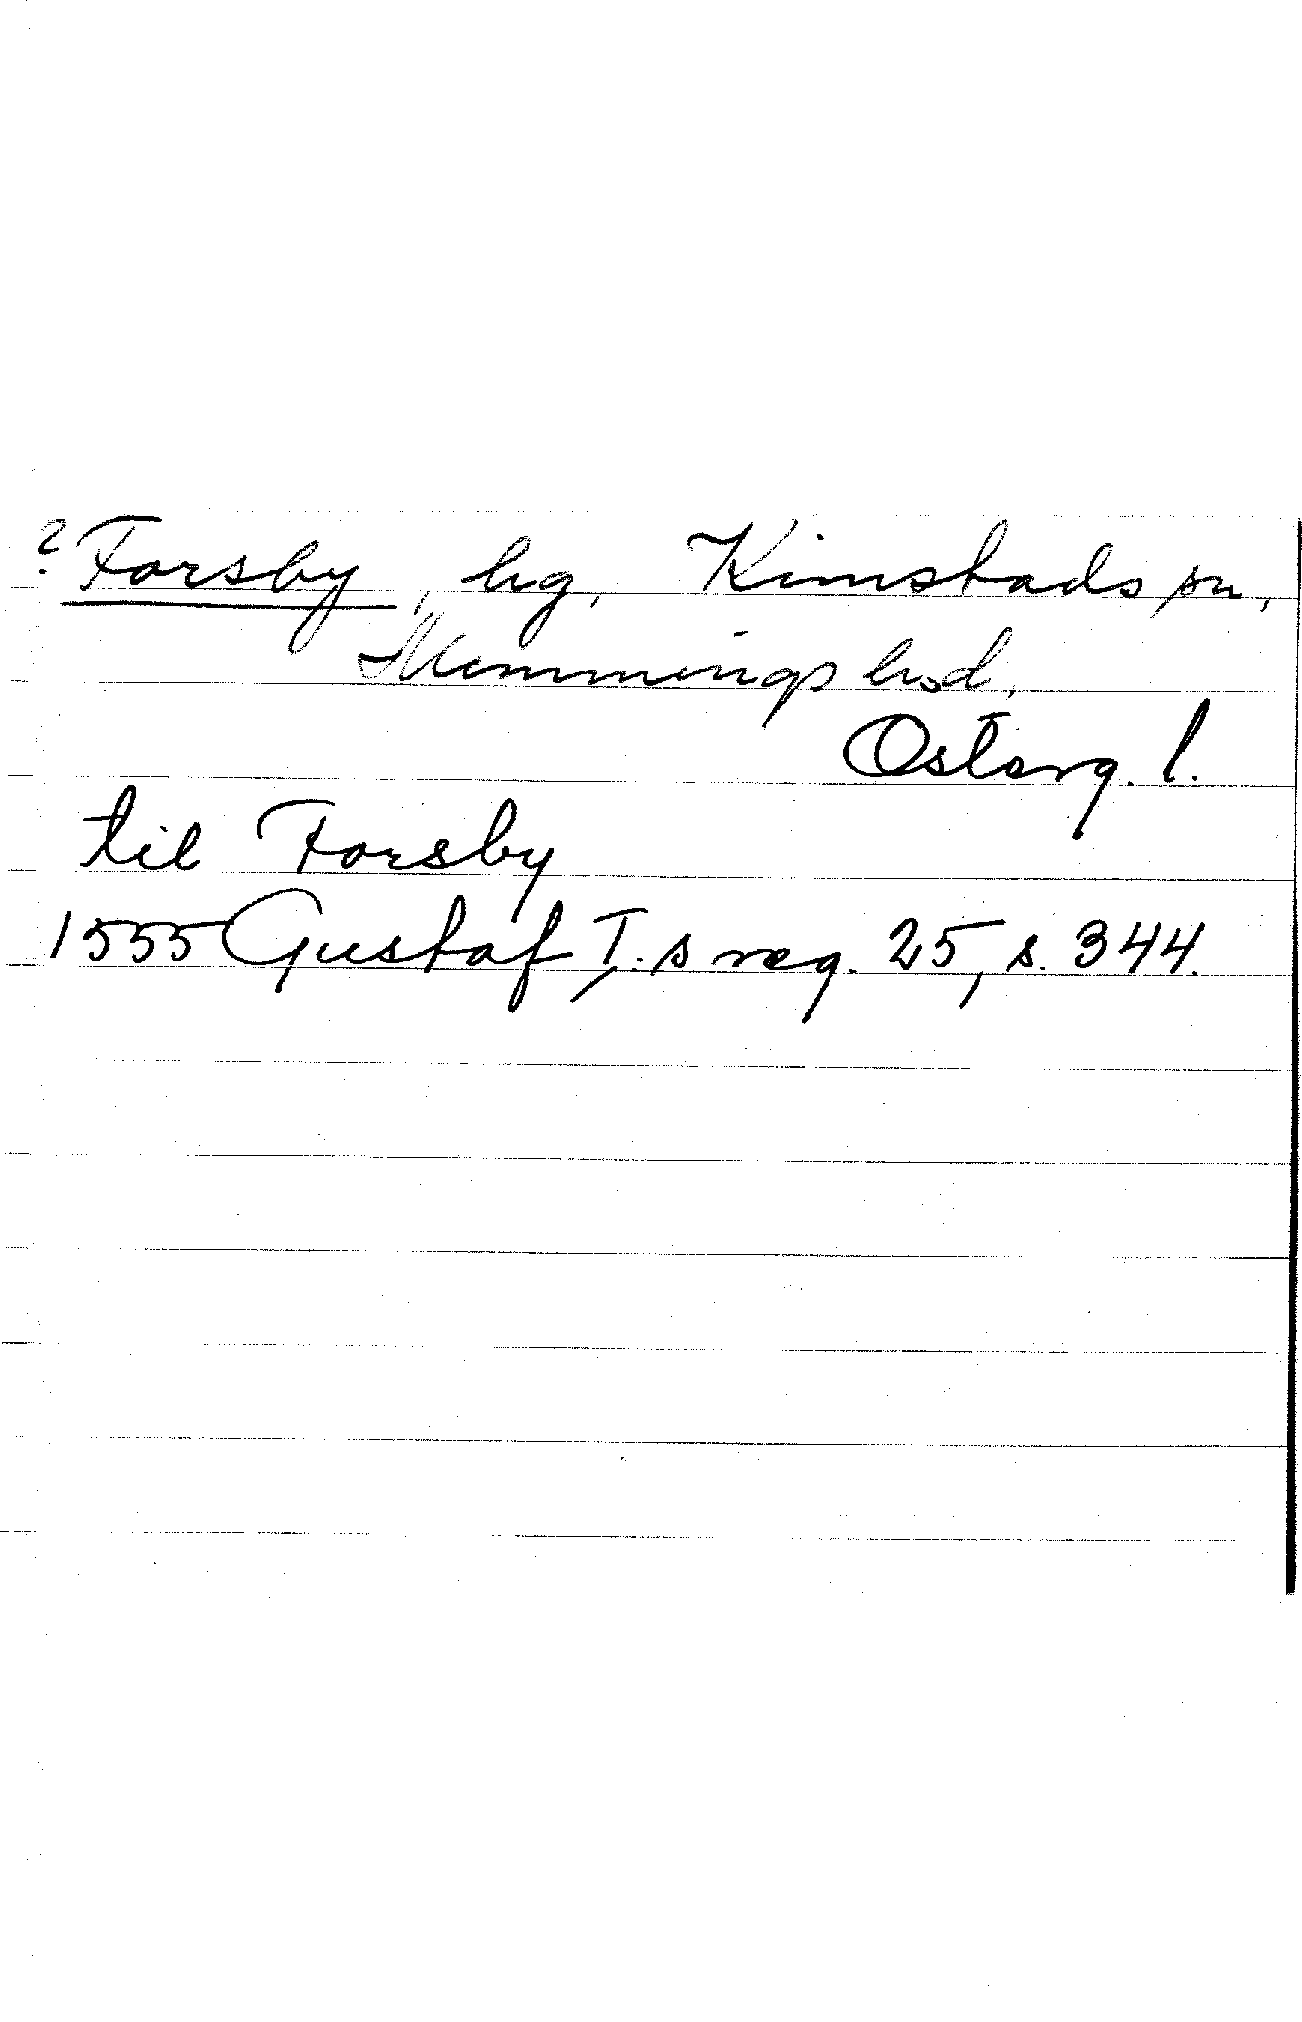 ? Forsby, hg, Kimstads sn,
Memmings hd,
Österg. l.
til Forsby
1555 Gustaf I:s reg. 25, s. 344.